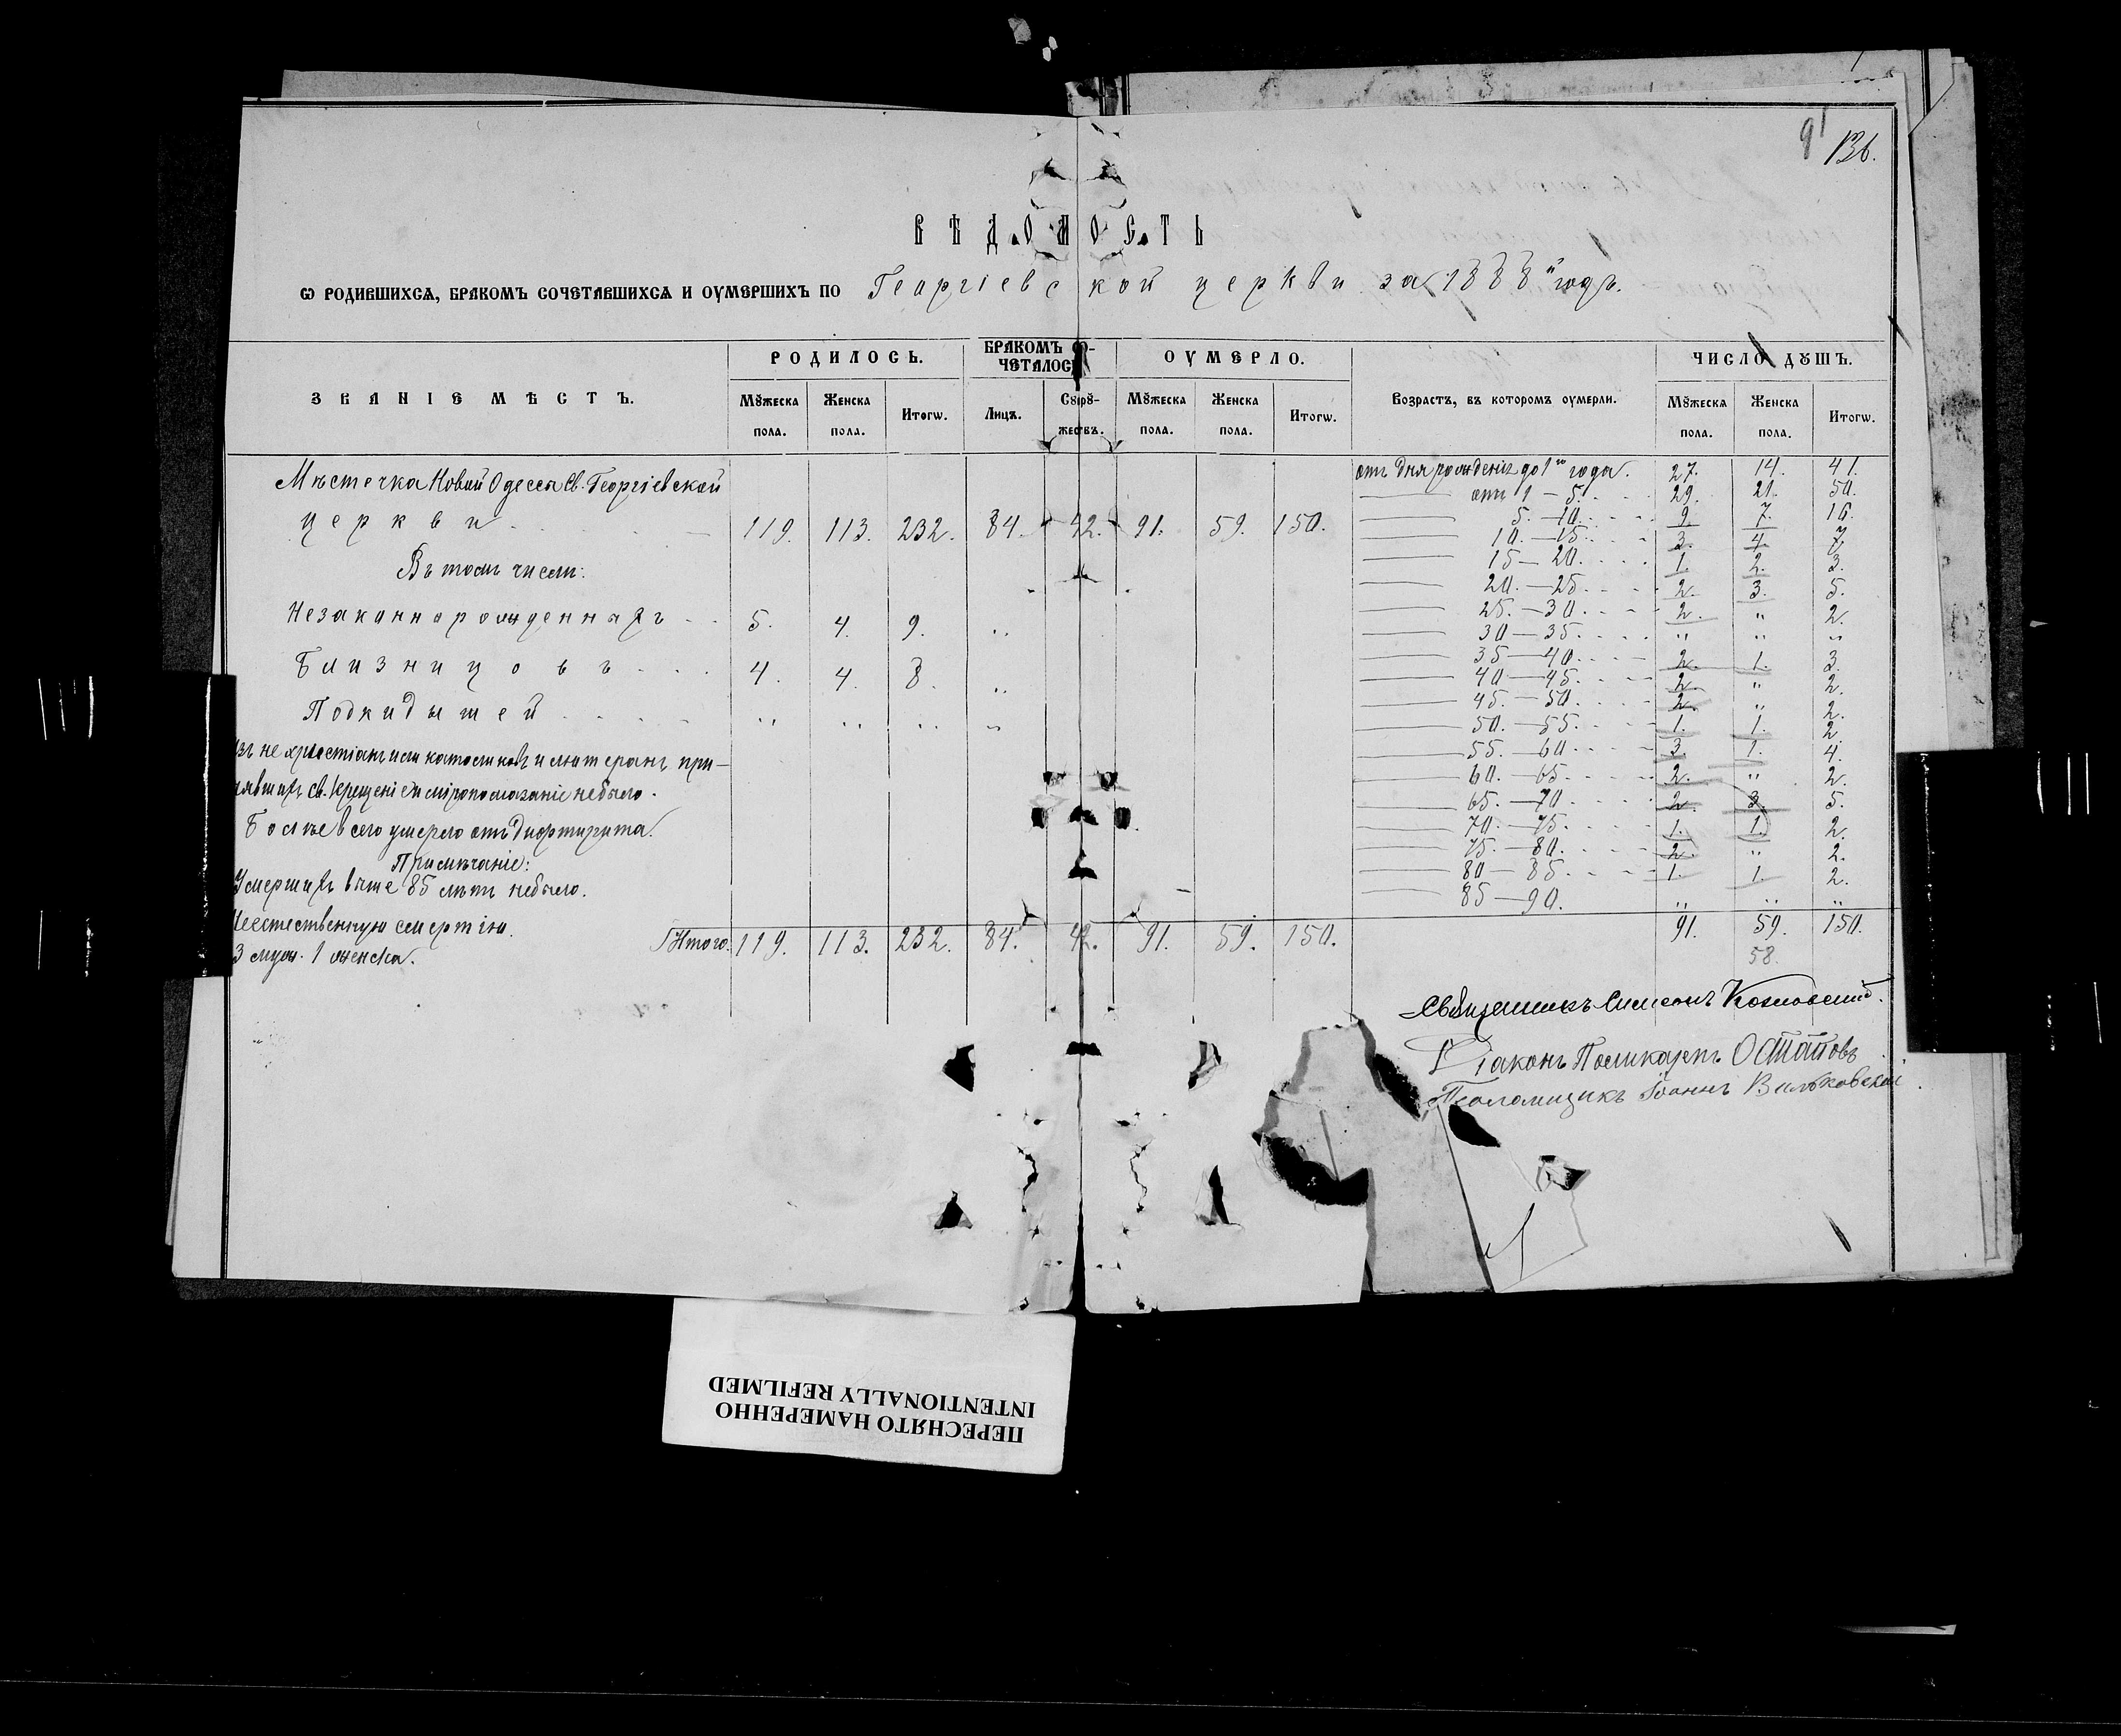 91
136.
ВѢДОМОСТЬ
Ѡ РОДИВШИХСѦ, БРАКОМЪ СОЧЕТАВШИХСѦ И ОУМЕРШИХЪ ПО Георгіевской церкви за 1888й годъ.
ЗВАНІЕ МѢСТЪ.
РОДИЛОСЬ.
БРАКОМЪ СО-
ЧЕТАЛОСЬ
ОУМЕРЛО.
Возрастъ, въ которомъ оумерли.
ЧИСЛО ДꙊШЪ.
Мꙋжеска пола. Женска пола. Итогѡ. Лицъ. Сꙋпрꙋ-жествъ. Мꙋжеска пола. Женска пола. Итогѡ. Мꙋжеска пола. Женска пола. Итогѡ.
Мѣстечка Новой Одессы Св. Георгіевской
церкви 119. 113. 232. 84. 42. 91. 59. 150.
Въ томъ числѣ:
Незаконнорожденныхъ 5. 4. 9. "
Близнецовъ 4. 4. 8. "
Подкидышей " " " "
изъ не христіанъ или католиковъ и лютеранъ при-
нявшихъ св. крещеніе и мѵропомазаніе небыло.
Болѣе всего умерло отъ Дифтирита.
Примѣчаніе:
Умершихъ выше 85 лѣтъ небыло.
Неестественную смертію
3 муж. 1 женска.
Итого. 119. 113. 232. 84. 42. 91. 59. 150.
отъ дня рожденія до 1го года. 27. 14. 41.
отъ 1 — 5. 29. 21. 50.
5. — 10. 9. 7. 16.
10. — 15. 3. 4. 7.
15 — 20. 1. 2. 3.
20. — 25. 2. 3. 5.
25. — 30. 2. " 2.
30 — 35. " " "
35 — 40. 2. 1. 3.
40 — 45. 2. " 2.
45. — 50. 2. " 2.
50. — 55. 1. 1. 2.
55. — 60. 3. 1. 4.
60. — 65. 2. " 2.
65. — 70. 2. 3. 5.
70. — 75. 1. 1. 2.
75. — 80. 2. " 2.
80 — 85. 1. 1. 2.
85 — 90. " " "
91. 59. 150.
58.
Священникъ Симеонъ Козловскій.
Діаконъ Поликарпъ Остаповъ
Псаломщикъ Іоаннъ Вильковскій
ПЕРЕСНЯТО НАМЕРЕННО
INTENTIONALLY REFILMED